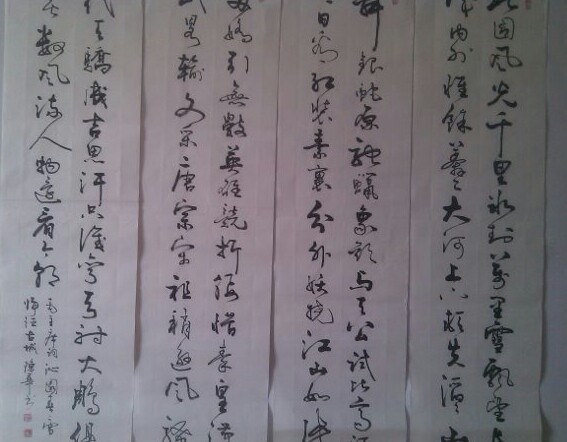 北国风光千里冰封万里雪飘望长
城内外惟馀莽莽大河上下顿失滔
舞银蛇原驰蜡象欲与天公试比高须
日看红装素裹分外妖娆江山如此
多娇引無数英雄竞折腰惜秦皇汉
武略输文采唐宗宋祖稍逊风骚
代天驕成吉思汗只识弯弓射大鵰俱
矣数风流人物还看今朝
毛主席词沁園春雪
古城